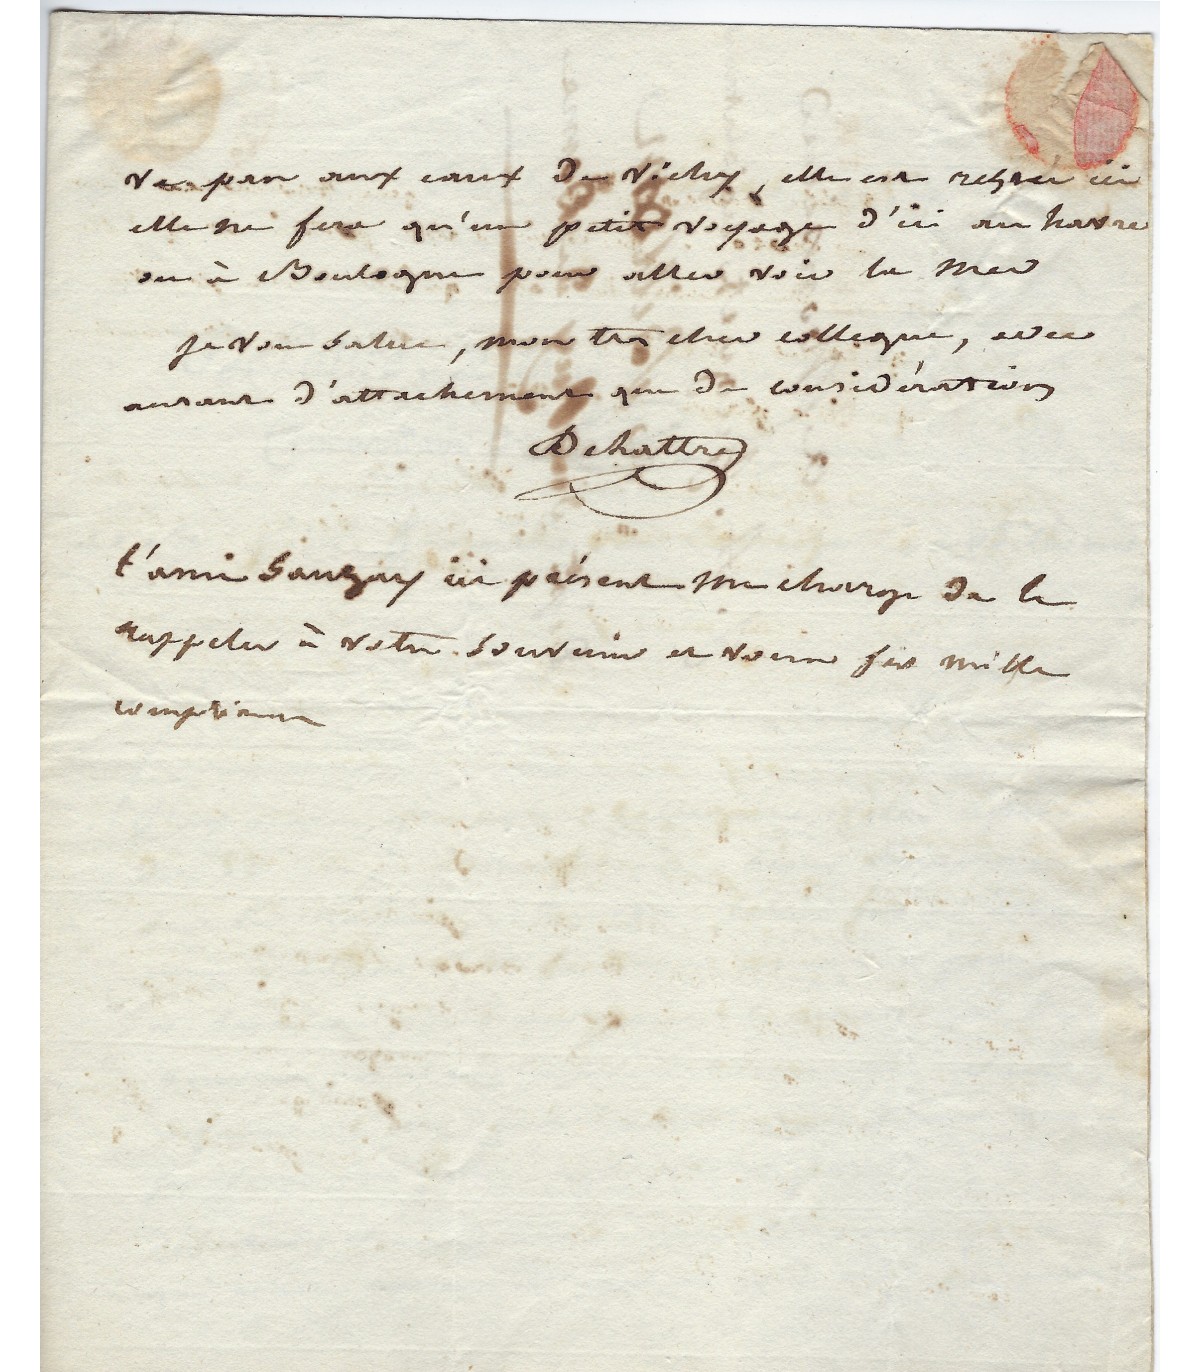 va pas aux eaux de Vichy, elle est restée ici
elle ne fera qu'un petit voyage d'ici au havre
ou à Boulogne pour aller voir la mer
je vous salue, mon très cher collegue, avec
autant d'attachement que de considération
Dehattre
l'ami Sauzay ici présent me charge de le
rappeler à votre souvenir et vous fait mille
complimens